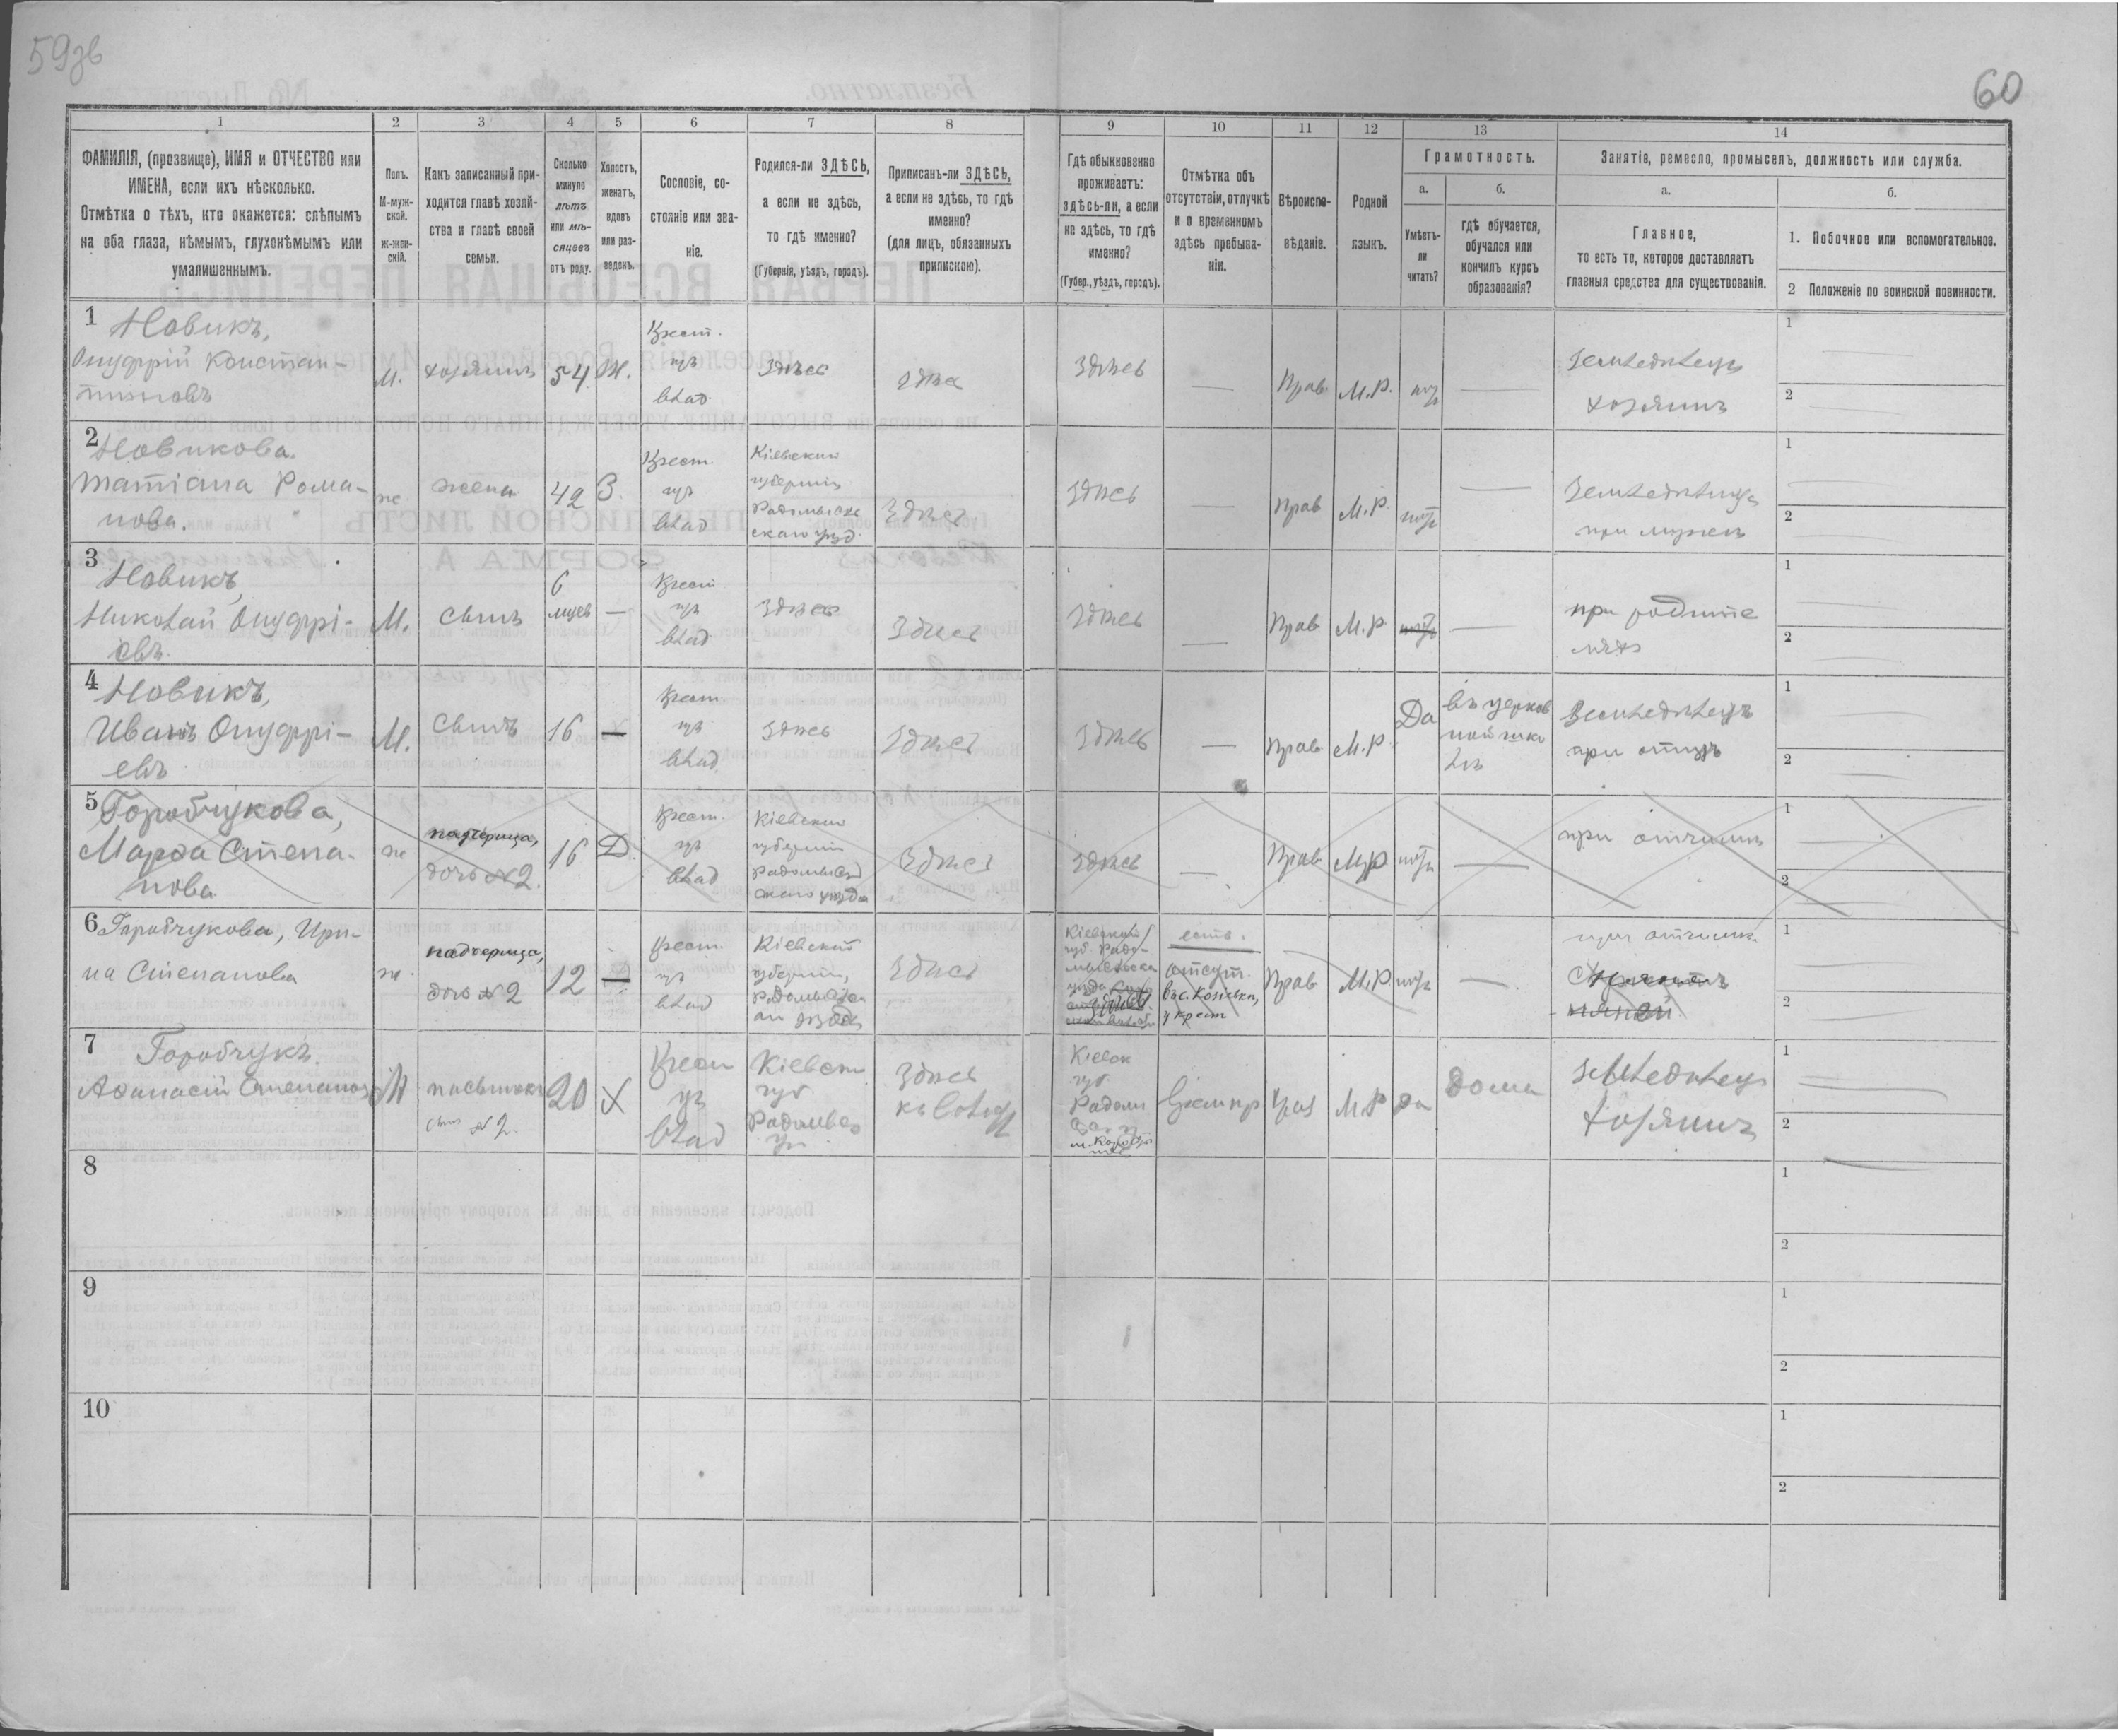 59зв
60
1
2
3
4
5
6
7
8
9
10
11
12
13
14
ФАМИЛІЯ, (прозвище), ИМЯ и ОТЧЕСТВО или
ИМЕНА, если ихъ нѣсколько.
Отмѣтка о тѣхъ, кто окажется: слѣпымъ
на оба глаза, нѣмымъ, глухонѣмымъ или
умалишеннымъ.
Полъ.
М-муж-
ской.
ж-жен-
скій.
Какъ записанный при-
ходится главѣ хозяй-
ства и главѣ своей
семьи.
Сколько
минуло
лѣтъ
или мѣ-
сяцевъ
отъ роду.
Холостъ,
женатъ,
вдовъ
или раз-
веденъ.
Сословіе, со-
стояніе или зва-
ніе.
Родился-ли ЗДѢСЬ,
а если не здѣсь,
то гдѣ именно?
(Губернія, уѣздъ, городъ).
Приписанъ-ли ЗДѢСЬ,
а если не здѣсь, то гдѣ
именно?
(для лицъ, обязанныхъ
припискою).
Гдѣ обыкновенно
проживаетъ:
здѣсь-ли, а если
не здѣсь, то гдѣ
именно?
(Губер., уѣздъ, городъ).
Отмѣтка объ
отсутствіи, отлучкѣ
и о временномъ
здѣсь пребыва-
ніи.
Вѣроиспо-
вѣданіе.
Родной
языкъ.
Грамотность.
а.
Умѣетъ-
ли
читать?
б.
гдѣ обучается,
обучался или
кончилъ курсъ
образованія?
Занятіе, ремесло, промыселъ, должность или служба.
а.
Главное,
то есть то, которое доставляетъ
главныя средства для существованія.
б.
1. Побочное или вспомогательное.
2 Положеніе по воинской повинности.
1 Новикъ,
Онуфрій Констан-
тиновъ
М.
хозяинъ
54
Ж.
Крест.
изъ
влад.
Здѣсь
Здѣсь
Здѣсь
—
Прав.
М.Р.
—
Земледѣлецъ
хозяинъ
1
2
2 Новикова
Татіана Рома-
нова.
ж
жена
42
З.
Крест.
изъ
влад
Кіевской
губерніи
Радомысль
скаго уѣзд.
Здѣсь
Здѣсь
—
Прав
М.Р.
—
при мужѣ
1
2
3 Новикъ,
Николай Онуфрі-
евъ.
М.
сынъ
6
—
Крест
изъ
влад.
Здѣсь
Здѣсь
Здѣсь
—
Прав
М.Р.
—
при родите
ляхъ
1
2
4 Новикъ,
Иванъ Онуфрі-
евъ
М.
сынъ
16
—
Крест
изъ
влад.
Здѣсь
Здѣсь
Здѣсь
—
Прав.
М.Р.
Да
въ церков
ной шко
лѣ
Земледѣлецъ
при отцѣ
1
2
5 Горобчукова,
Марѳа Степа-
нова
ж
падчерица,
дочь №2.
16
Д
Крест.
изъ
влад
Кіевской
губерніи
Радомысль
скаго уѣзда
Здѣсь
Здѣсь
—
Прав
М.Р
—
при отчимѣ
1
2
6 Горобчукова, Ири-
на Степанова
ж.
падчерица,
дочь №2
12
—
Крест.
изъ
влад
Кіевской
губерніи,
Здѣсь
Кіевской
губ. Радо-
отсут.
Прав
М.Р.
—
при отчимѣ
1
2
7 Горобчукъ
Аѳанасій Степановъ
М
пасынокъ
сынъ №2.
20
Х
Крест
изъ
влад
Кіевск
губ
Радомысл
Здѣсь
Кіевск
губ
Радом
М.Р
да
дома
Земледѣлецъ
хозяинъ
1
2
8
1
2
9
1
2
10
1
2